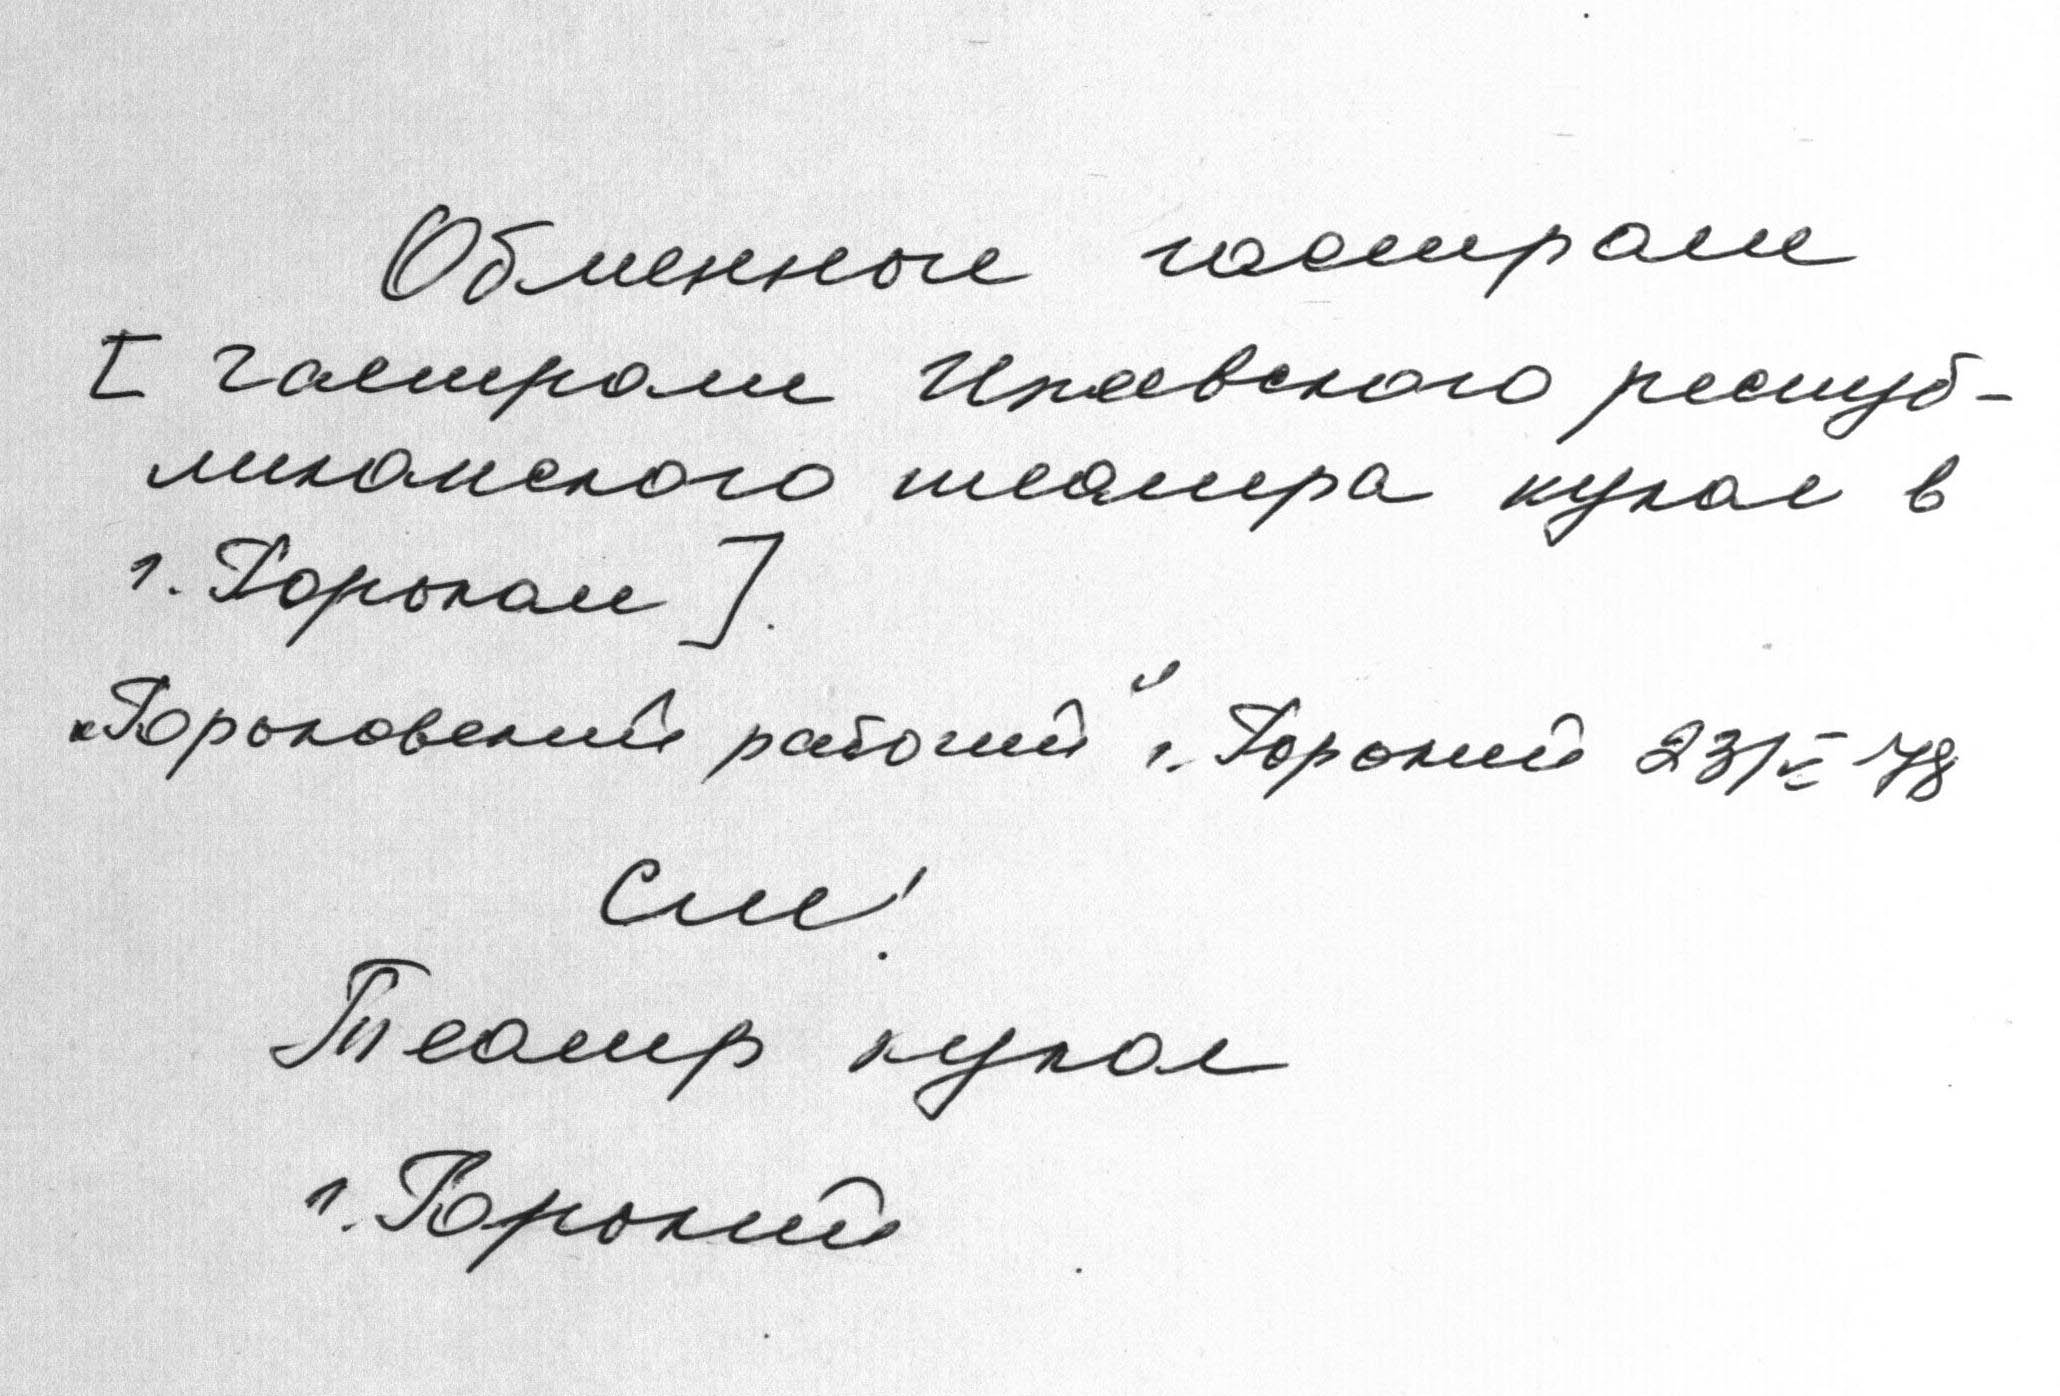 Обменные гастроли
[Гастроли Ижевского респуб-
ликанского театра кукол в
г. Горьком].
"Горьковский рабочий" г. Горький 23/V-78
См!
Театр кукол
г. Горький